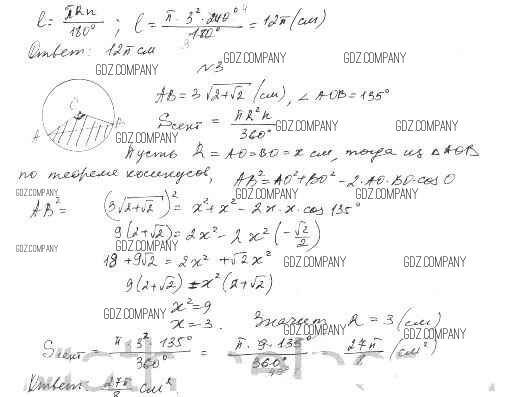 l = πRn/180°; l = π·3²·240°/180° = 12π (см)
Ответ: 12π см
GDZ.COMPANY GDZ.COMPANY GDZ.COMPANY
№3
AB = 3√(2+√2) (см), ∠AOB = 135°
Sсект = πR²n/360°
GDZ.COMPANY GDZ.COMPANY GDZ.COMPANY
Пусть R = AO = BO = x см, тогда из △AOB
по теореме косинусов, AB² = AO² + BO² - 2·AO·BO·cos O
GDZ.COMPANY GDZ.COMPANY GDZ.COMPANY
AB² = (3√(2+√2))² = x² + x² - 2x·x·cos 135°
9(2+√2) = 2x² - 2x²(-√2/2)
GDZ.COMPANY GDZ.COMPANY
18 + 9√2 = 2x² + √2x²
GDZ.COMPANY GDZ.COMPANY
9(2+√2) = x²(2+√2)
x² = 9
GDZ.COMPANY GDZ.COMPANY GDZ.COMPANY
x = 3. Значит R = 3 (см)
GDZ.COMPANY GDZ.COMPANY
Sсект = π·3²·135°/360° = π·9·135°/360° = 27π/8 (см²)
Ответ: 27π/8 см².